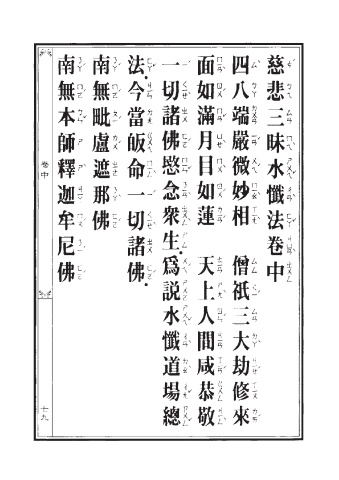 慈悲三昧水懺法卷中
四八端嚴微妙相　僧祇三大劫修來
面如滿月目如蓮　天上人間咸恭敬
一切諸佛愍念衆生．爲説水懺道場總
法．今當皈命一切諸佛．
南無毗盧遮那佛
南無本師釋迦牟尼佛
卷中
十九